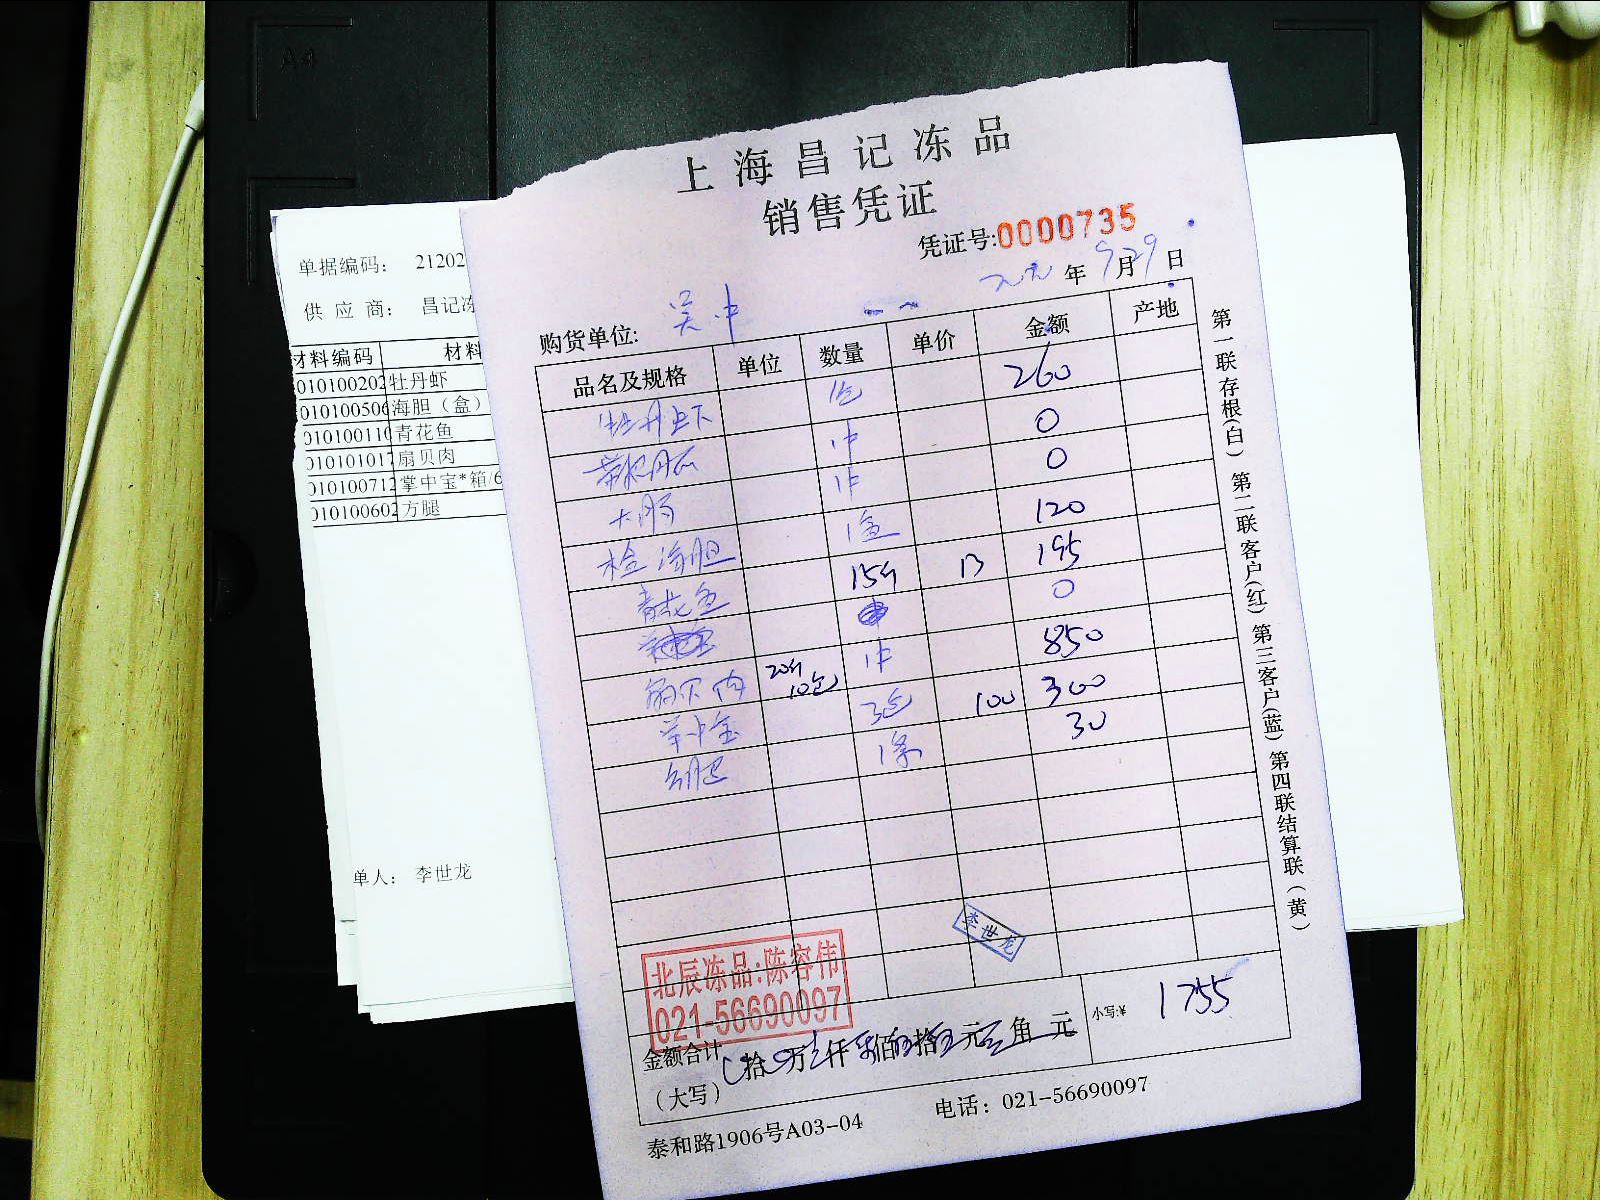 上海昌记冻品
销售凭证
凭证号:0000735
年 9月29日
购货单位: 吴中
品名及规格 单位 数量 单价 金额 产地
牡丹虾 1包 260
1件 0
大肠 1件 0
海胆 1盒 120
青花鱼 15条 13 195
0
扇贝肉 10包 1件 850
掌中宝 3包 100 300
1条 30
北辰冻品:陈容伟
021-56690097
李世龙
金额合计
(大写) 拾 万 仟 佰 拾 元 角 元 小写:¥ 1755
泰和路1906号A03-04 电话: 021-56690097
第一联存根(白) 第二联客户(红) 第三客户(蓝) 第四联结算联(黄)
单据编码: 21202
供 应 商: 昌记冻
材料编码 材料
010100202 牡丹虾
010100506 海胆(盒)
01010011 青花鱼
01010101 扇贝肉
010100712 掌中宝*箱/6
010100602 方腿
单人: 李世龙
A4